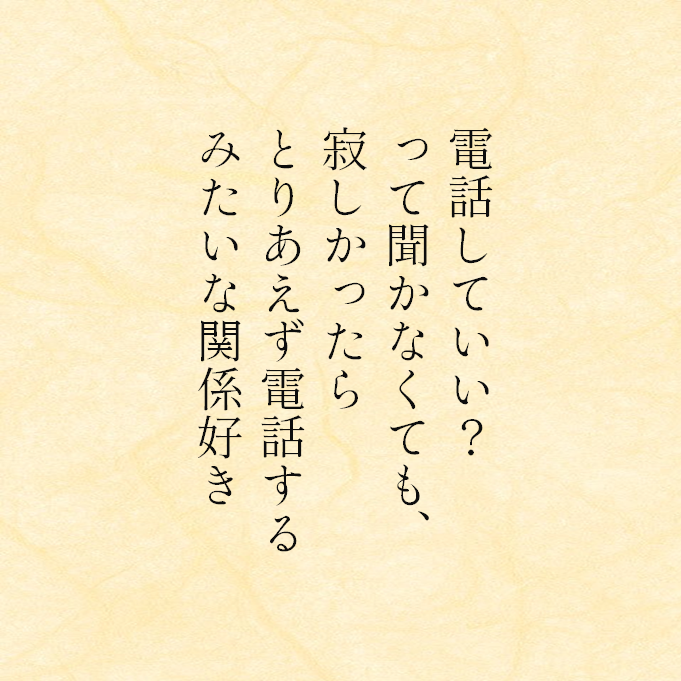 電話していい？
って聞かなくても、
寂しかったら
とりあえず電話する
みたいな関係好き